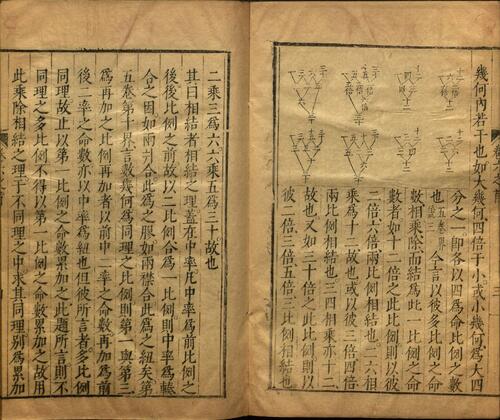 幾何內若干也如大幾何四倍于小或小幾何爲大四
分之一卽各以四爲命比例之數
也五卷界三今言以彼多比例之命
數相乘除而結爲此一比例之命
數者如十二倍之此比例則以彼
二倍六倍兩比例相結也二六相
乘爲十二故也或以彼三倍四倍
兩比例相結也三四相乘亦十二
故也又如三十倍之此比例則以
彼二倍三倍五倍三比例相結也
二乘三爲六六乘五爲三十故也
其曰相結者相結之理蓋在中率凡中率爲前比例之
後後比例之前故以二比例合爲一比例則中率爲輳
合之因如兩爿合此爲之膠如兩襟合此爲之紐矣第
五卷第十界言數幾何爲同理之比例則第一與第三
爲再加之比例再加者以前中二率之命數再加爲前
後二率之命數亦以中率爲紐也但彼所言者多比例
同理故止以第一比例之命數累加之此題所言則不
同理之多比例不得以第一比例之命數累加之故用
此乘除相結之理于不同理之中求其同理別爲累加